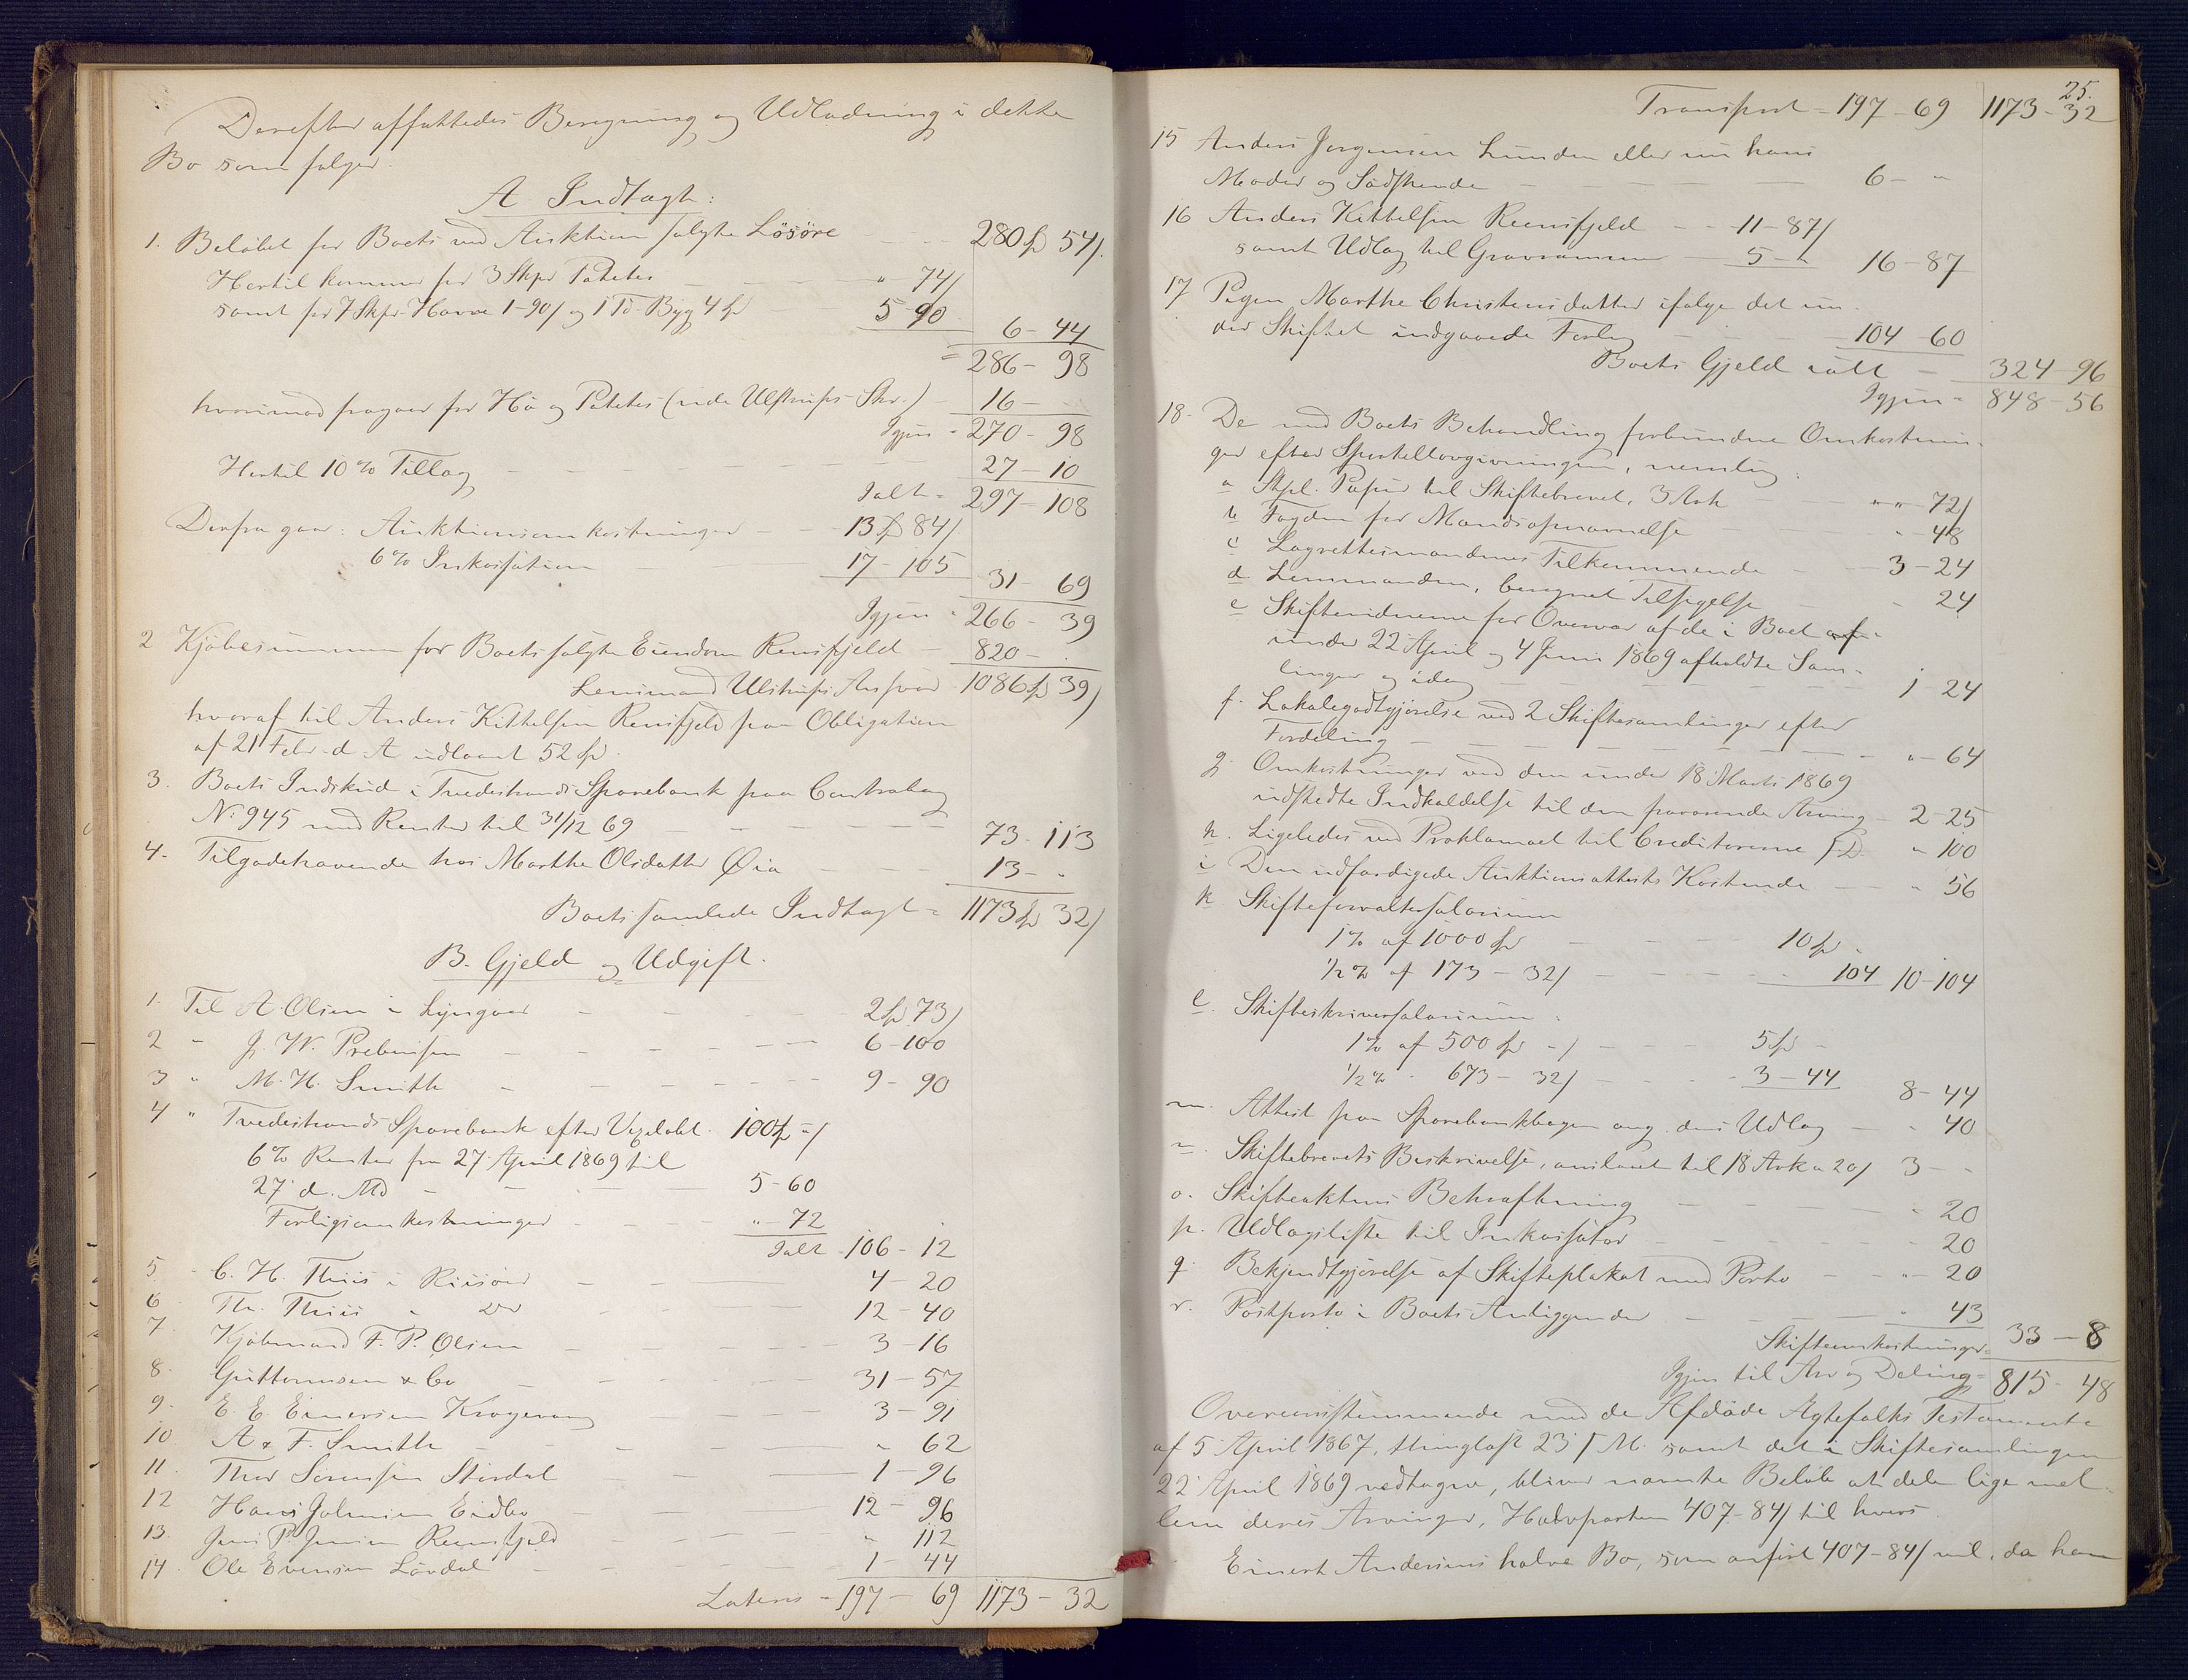 Derefter affattedes Beregning og Udlodning i dette
Bo som følger.
A Indtægt:
1. Beløbet for Boets ved Auktion solgte Løsøre 280 Spd 54/.
Hertil kommer for 3 Skpr Poteter " 74/
samt for 7 Skpr Havre 1-90/ og 1 Td. Byg 4 Spd 5-90
6-44
= 286-98
hvorimod fragaar for Hø og Poteter (vide Ulstrups Skr.) 16-
Igjen = 270-98
Hertil 10% Tillæg 27-10
Ialt = 297-108
Derfra gaar: Auktionsomkostninger 13 Spd 84/
6% Inkassation 17-105
31-69
Igjen = 266-39
2 Kjøbesummen for Boets solgte Eiendom Rensfjeld 820-.
Lensmand Ulstrups Ansvar 1086 Spd 39/
hvoraf til Anders Kittelsen Rensfjeld paa Obligation
af 21 Febr. d. A. udlaant 52 Spd.
3. Boets Indskud i Tvedestrands Sparebank paa Contrabog
No 945 med Renter til 31/12 69 73-113
4. Tilgodehavende hos Marthe Olsdatter Øia 13-"
Boets samlede Indtægt = 1173 Spd 32/
B. Gjeld og Udgift.
1. Til A. Olsen i Lyngør 2 Spd 73/
2 " J. W. Prebensen 6-100
3 " M. H. Smith 9-90
4 " Tvedestrands Sparebank efter Vexelobl. 100 Spd "/
6% Renter fra 27 April 1869 til
27 d. Md 5-60
Forligsomkostninger " 72
Ialt 106-12
5. C. H. Thiis i Riisøer 4-20
6 Th. Thiis " do 12-40
7 Kjøbmand F. P. Olsen 3-16
8. Guttormsen & Co 31-57
9. E. E. Einersen Kragerøe 3-91
10 A & F. Smith " 62
11. Thor Sørensen Størdal 1-96
12 Hans Johnsen Eidbo 12-96
13. Jens P. Jensen Reensfjeld " 112
14 Ole Evensen Lørdal 1-44
Lateris = 197-69 1173-32
25.
Transport = 197-69 1173-32
15 Anders Jørgensen Lunden eller nu hans
Moder og Sødskende 6-"
16 Anders Kittelsen Reensfjeld 11-87/
samt Udlæg til Gravrammer 5-" 16-87
17 Pigen Marthe Christensdatter ifølge det un-
der Skiftet indgaaede Forlig 104-60
Boets Gjeld ialt 324-96
Igjen = 848-56
18- De med Boets Behandling forbundne Omkostnin-
ger efter Sportellovgivningen, nemlig:
a Stpl. Papir til Skiftebrevet, 3 Ark " " 72/
b Fogden for Mandsopnævnelse " 48
c Lagrettesmændenes Tilkommende 3-24
d Lensmanden, beregnet Tilsigelse " 24
e Skiftevidnerne for Overvær af de i Boet
under 22 April og 4 Juni 1869 afholdte Sam-
linger og idag 1-24
f. Lokalegodtgjørelse ved 2 Skiftesamlinger efter
Fordeling " 64
g. Omkostninger ved den under 18 Marts 1869
udstedte Indkaldelse til den fraværende Arving 2-25
h. Ligeledes ved Proklamaet til Creditorerne s. D. " 100
i Den udfærdigede Auktionsattests Kostende " 56
k Skifteforvaltersalarium
1% af 1000 Spd 10 Spd "
1/2% af 173-32/ 104 10-104
l. Skifteskriversalarium:
1% af 500 Spd "/ 5 Spd -
1/2% - 673-32/ 3-44 8-44
m. Attest paa Sparebankbogen ang. dens Udlæg " 40
n. Skiftebrevets Beskrivelse, anslaaet til 18 Ark a 20/ 3-"
o. Skifteaktens Bekræftning " 20
p. Udlagsliste til Inkassator 20
q. Bekjendtgjørelse af Skifteplakat med Porto " 20
r. Postporto i Boets Anliggender " 43
Skifteomkostninger = 33-8
Igjen til Arv og Deling = 815-48
Overeensstemmende med de Afdøde Ægtefolks Testamente
af 5 April 1867, thinglæst 23 s. M. samt det i Skiftesamlingen
22 April 1869 vedtagne, bliver nævnte Beløb at dele lige mel-
lem deres Arvinger, Halvparten 407-84/ til hvers.
Einert Andersens halve Bo, som anført 407-84/ vil, da han